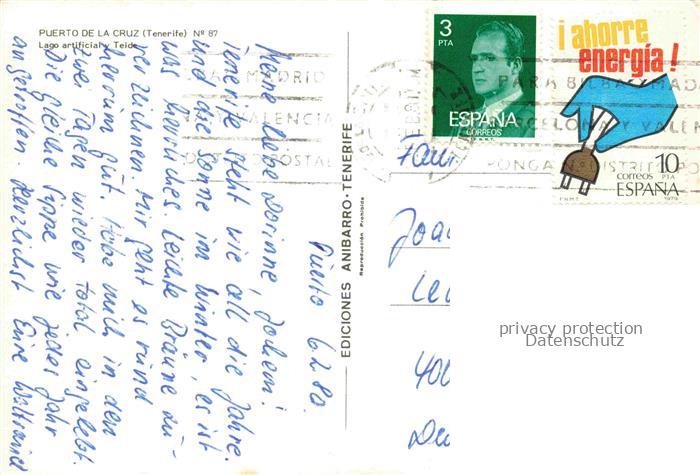 PUERTO DE LA CRUZ (Tenerife) Nº 87
Lago artificial y Teide
Puerto 6.2.80.
Meine liebe Dorinne, Jochem!
Tenerife steht wie all die Jahre.
und die Sonne im Winter, es ist
was herrliches. Leichte Bräune zu-
verzeichnen. Mir geht es rund
herum gut. Habe mich in den
zwei Tagen wieder total eingelebt.
Die gleiche Gruppe wie jedes Jahr
angetroffen. Herzlichst Eure Waltraud
EDICIONES ANIBARRO-TENERIFE
Reproducción Prohibida
3
PTA
ESPAÑA
CORREOS
F.N.M.T.
¡ahorre
energía!
10
PTA
CORREOS
ESPAÑA
F.N.M.T.
1979
PARA BILBAO MADRID
BARCELONA Y VALENCIA
PONGA Nº DISTRITO POSTAL
MADRID
Y VALENCIA
POSTAL
Fam
Joa
Le
400
Deu
privacy protection
Datenschutz